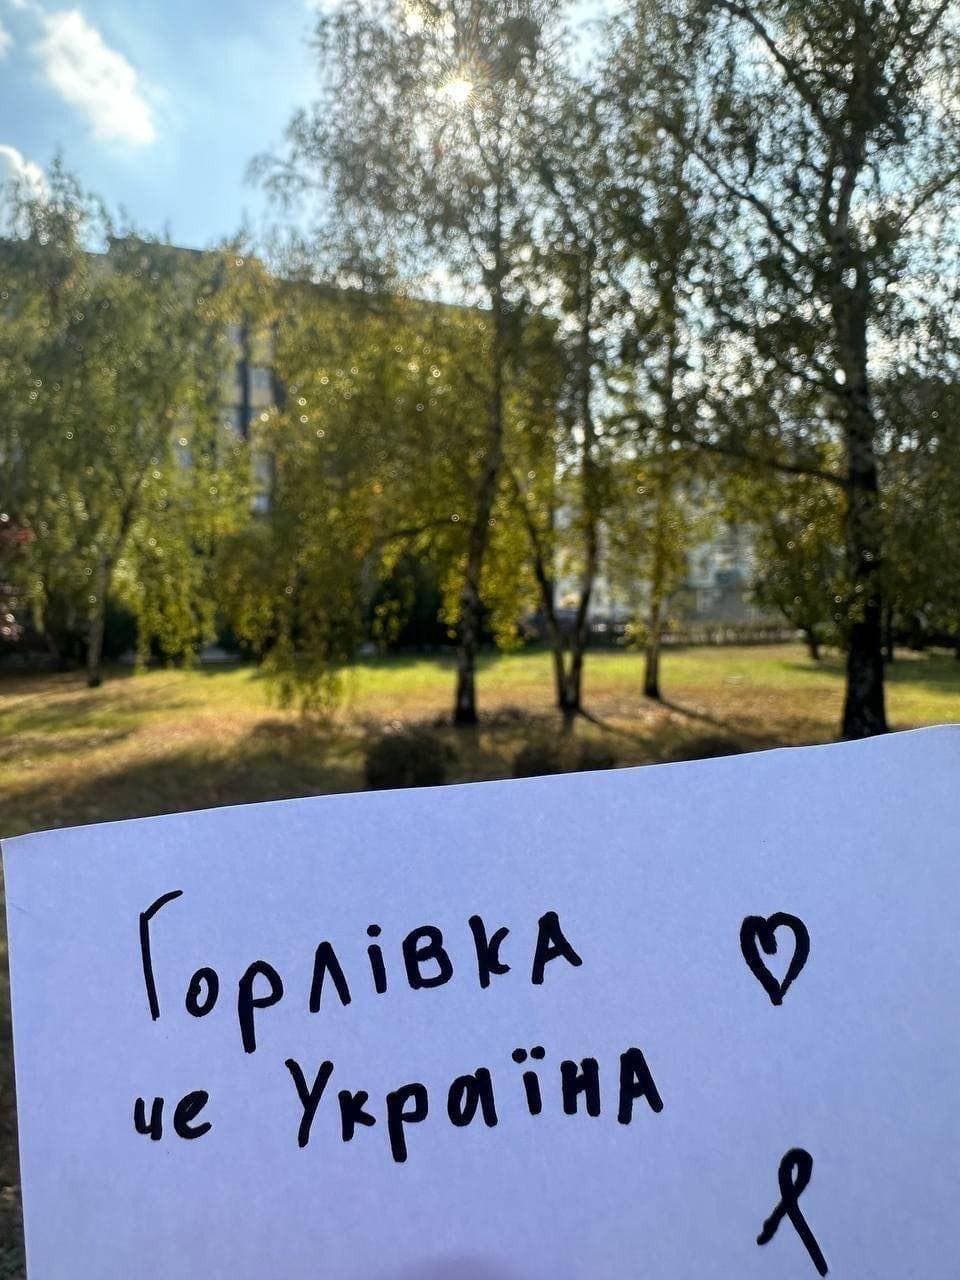 Горлівка
це Україна